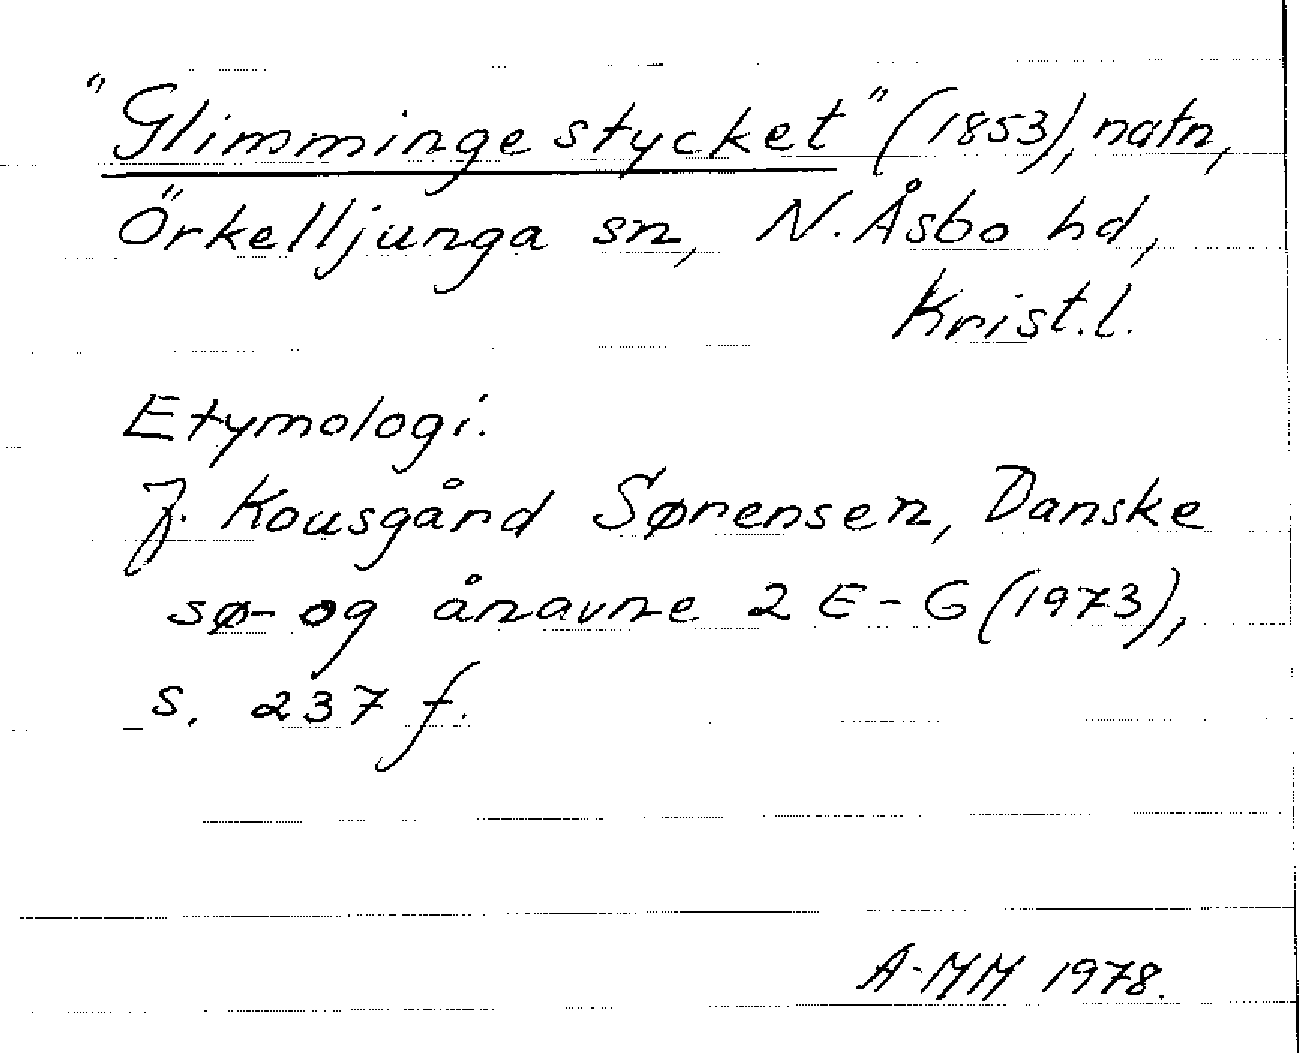 "Glimmingestycket" (1853), natn,
Örkelljunga sn, N. Åsbo hd,
Krist.l.
Etymologi.
J. Kousgård Sørensen, Danske
sø- og ånavne 2 E-G (1973),
s. 237 f.
A-MM 1978.